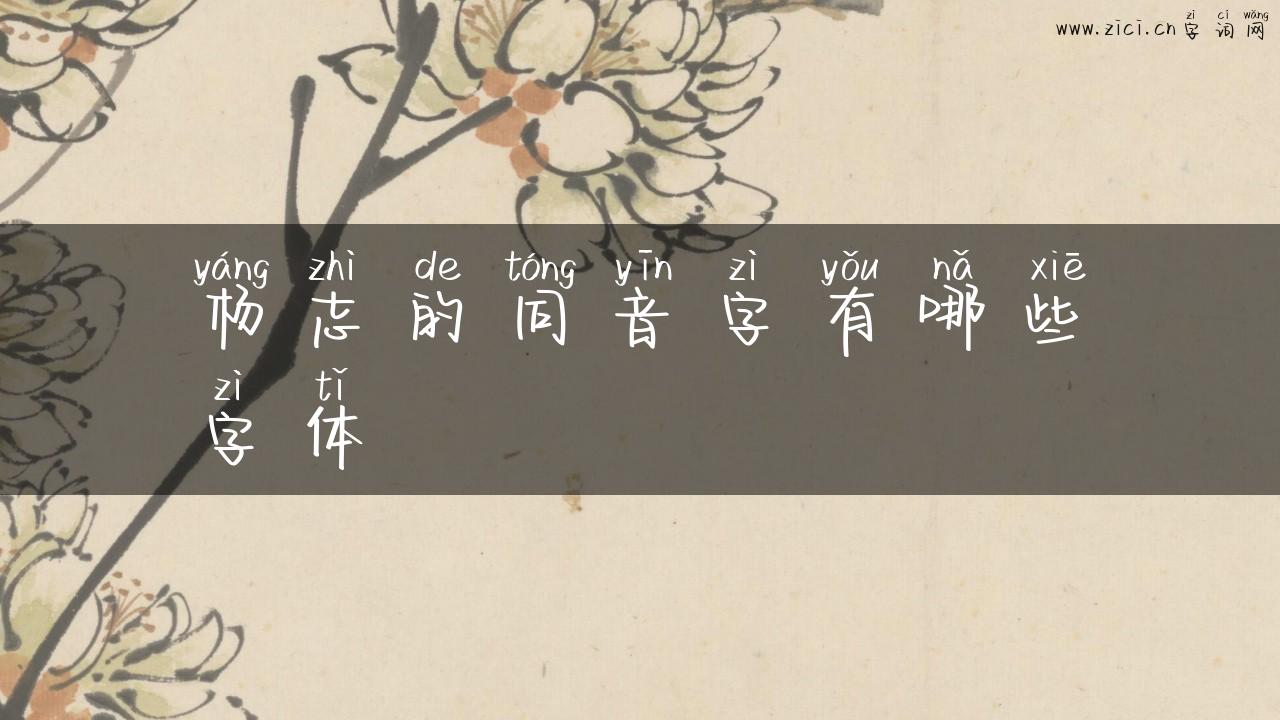 zì cí wǎng
www.zici.cn 字词网
yáng zhì de tóng yīn zì yǒu nǎ xiē
杨志的同音字有哪些
zì tǐ
字体